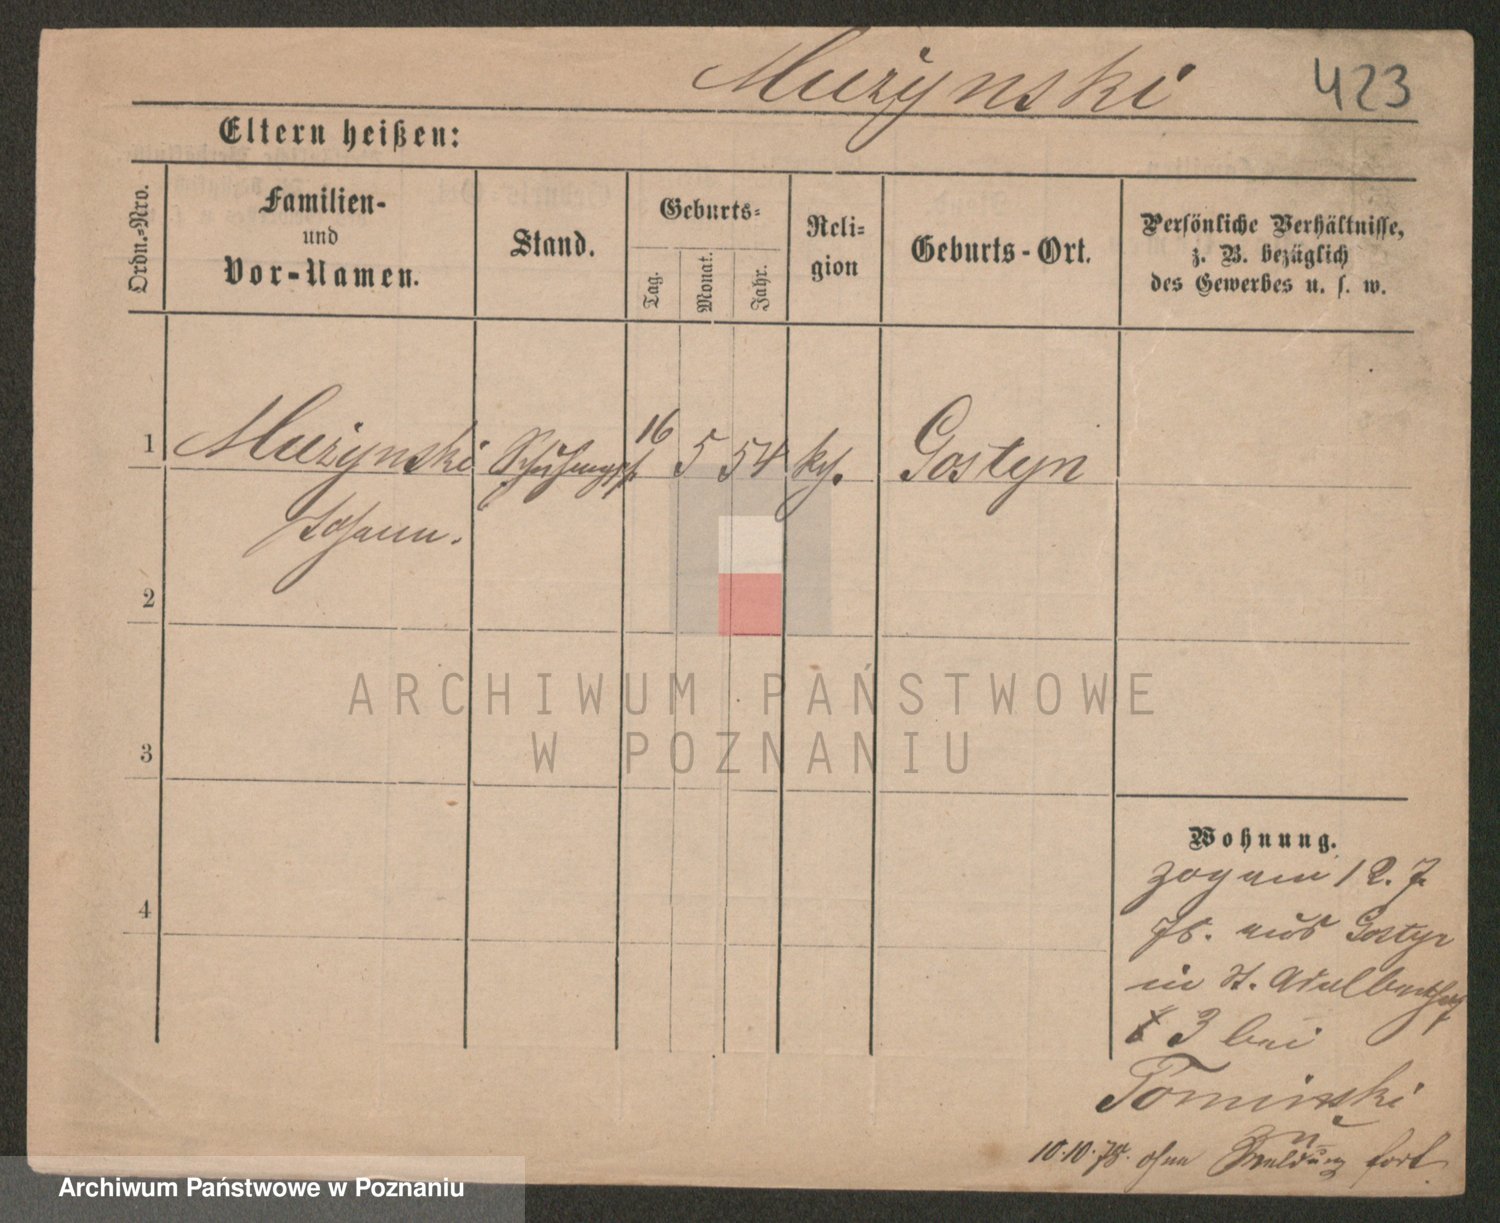 Muzynski 423
Eltern heißen:
Ordn.-Nro.
Familien-
und
Vor-Namen.
Stand.
Geburts-
Tag.
Monat.
Jahr.
Reli-
gion
Geburts-Ort.
Persönliche Verhältnisse,
z. B. bezüglich
des Gewerbes u. s. w.
1 Mużynski 16 5 54 kth. Gostyn
Johann.
2
3
4
ARCHIWUM PAŃSTWOWE
W POZNANIU
Wohnung.
zog am 12. 7.
78. aus Gostyn
in St. Adalbertstr
3 bei
Tominski
10.10.78. ohne Meldung fort.
Archiwum Państwowe w Poznaniu